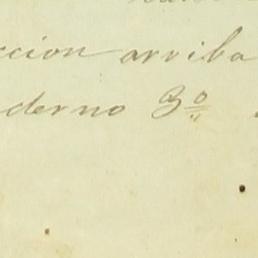 ccion arriba
derno 3º